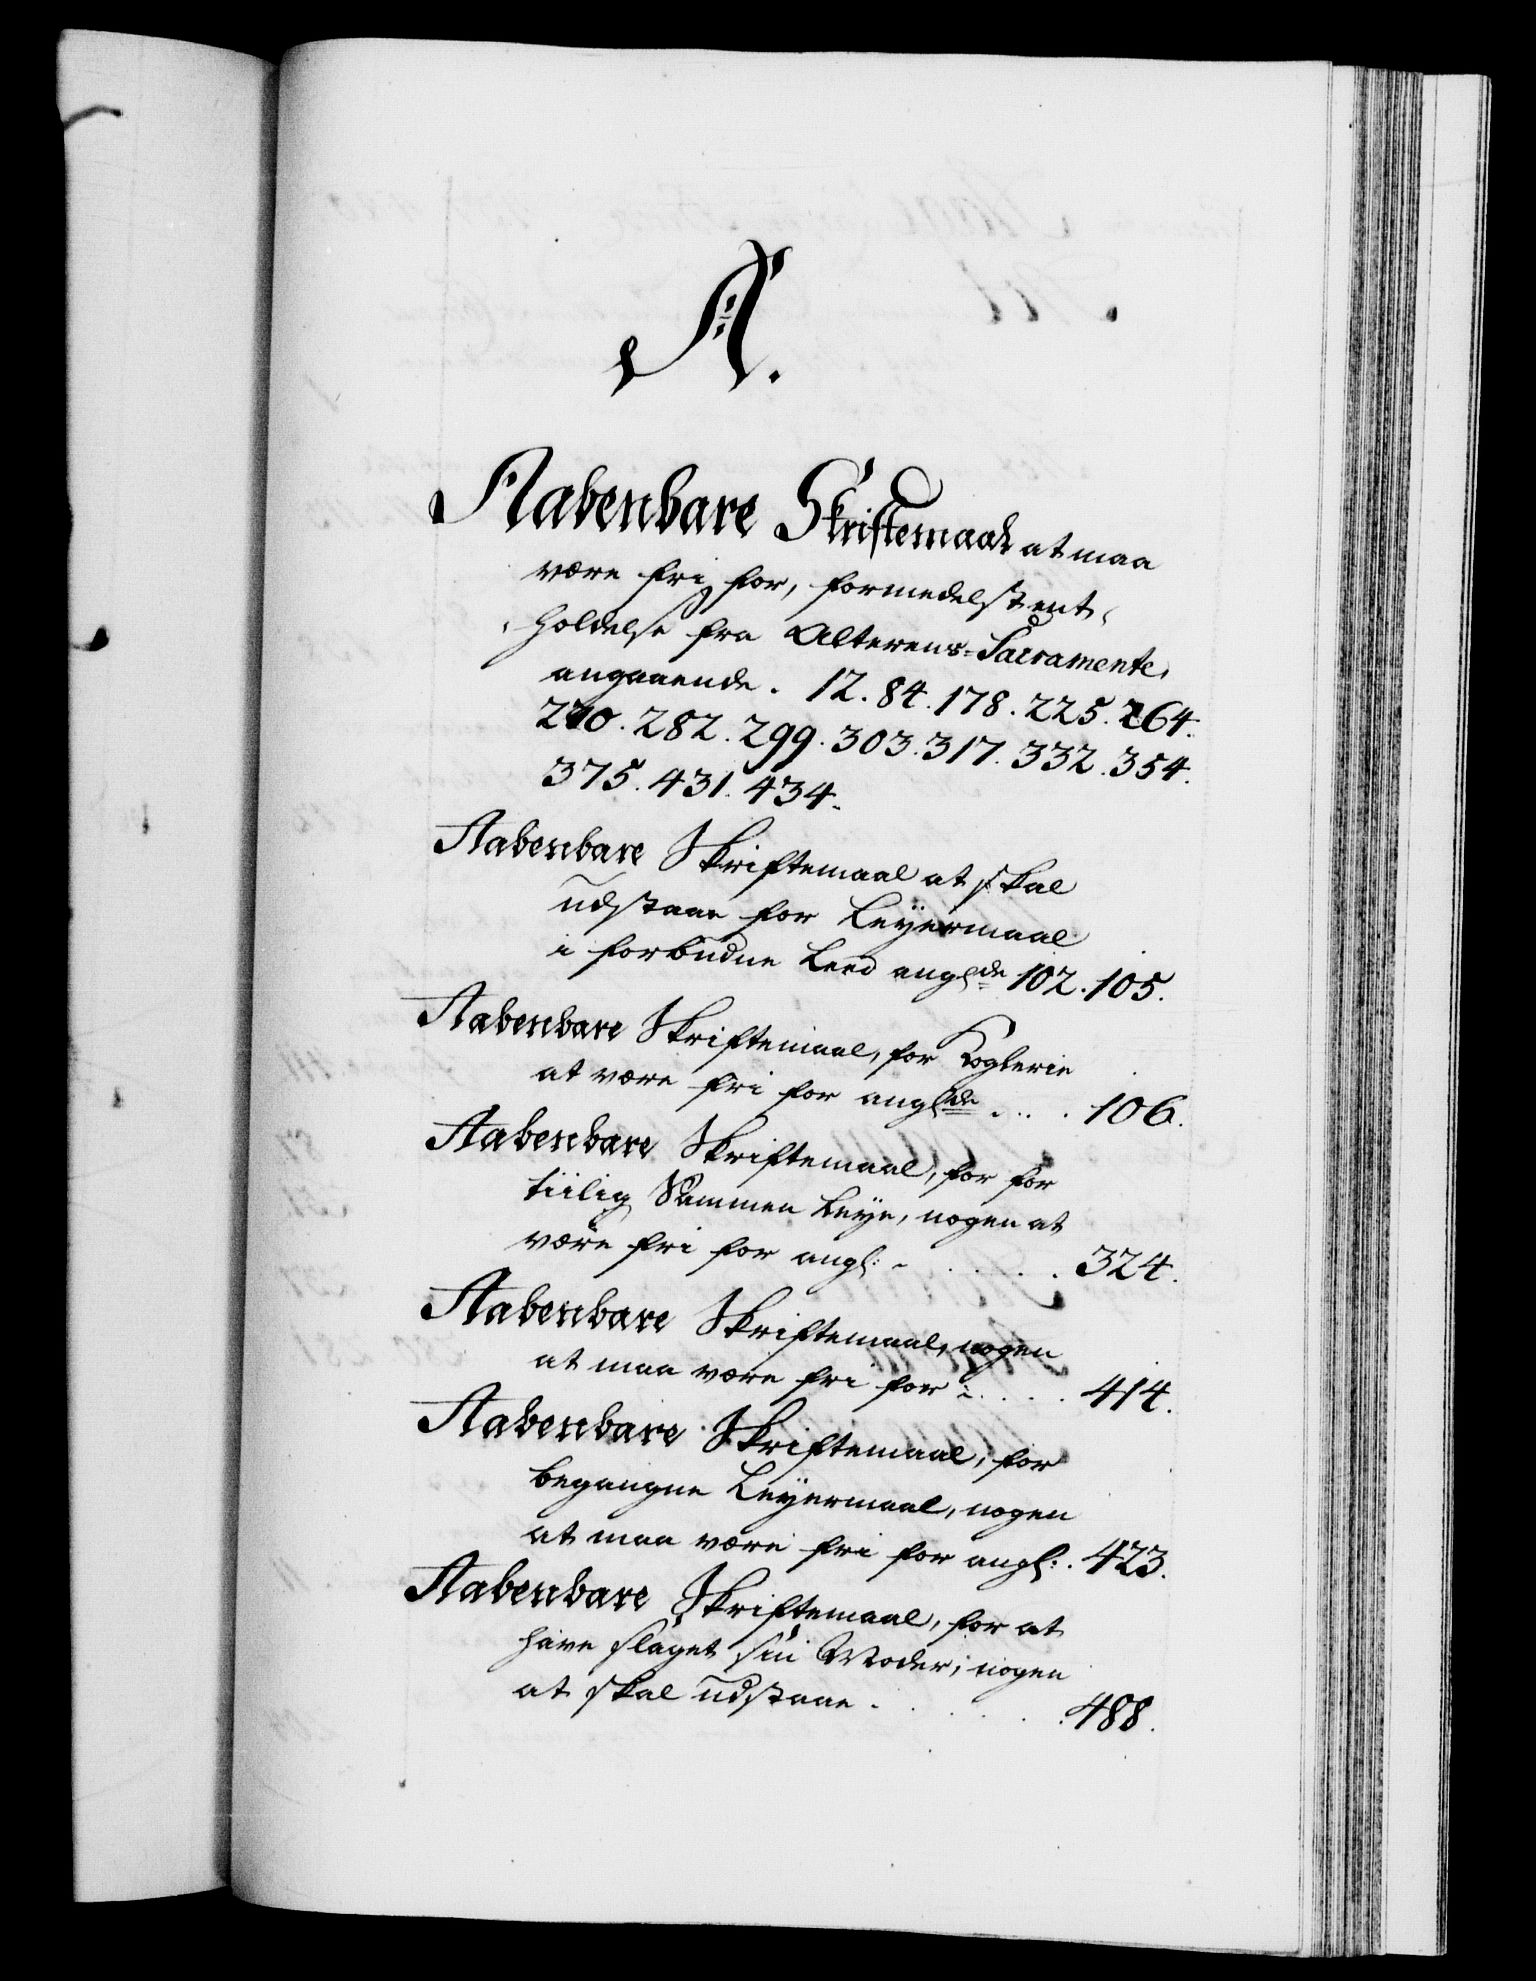 A.
Aabenbare Skriftemaal at maa
være fri for, formedelst ent-
holdelse fra Alterens-Sacramente,
angaaende. 12. 84. 178. 225. 264.
270. 282. 299. 303. 317. 332. 354.
375. 431. 434.
Aabenbare Skriftemaal at skal
udstaae for Leyermaal
i forbudne Leed anglde 102. 105.
Aabenbare Skriftemaal, for Koglerie
at være fri for anglde . . . . 106.
Aabenbare Skriftemaal, for for
tiilig Sammen Leye, nogen at
være fri for angl: . . . . . 324.
Aabenbare Skriftemaal, nogen
at maa være fri for . . . . 414.
Aabenbare Skriftemaal, for
begangne Leyermaal, nogen
at maa være fri for angl: . 423.
Aabenbare Skriftemaal, for at
have slaget sin Moder, nogen
at skal udstaae . . . . . . 488.